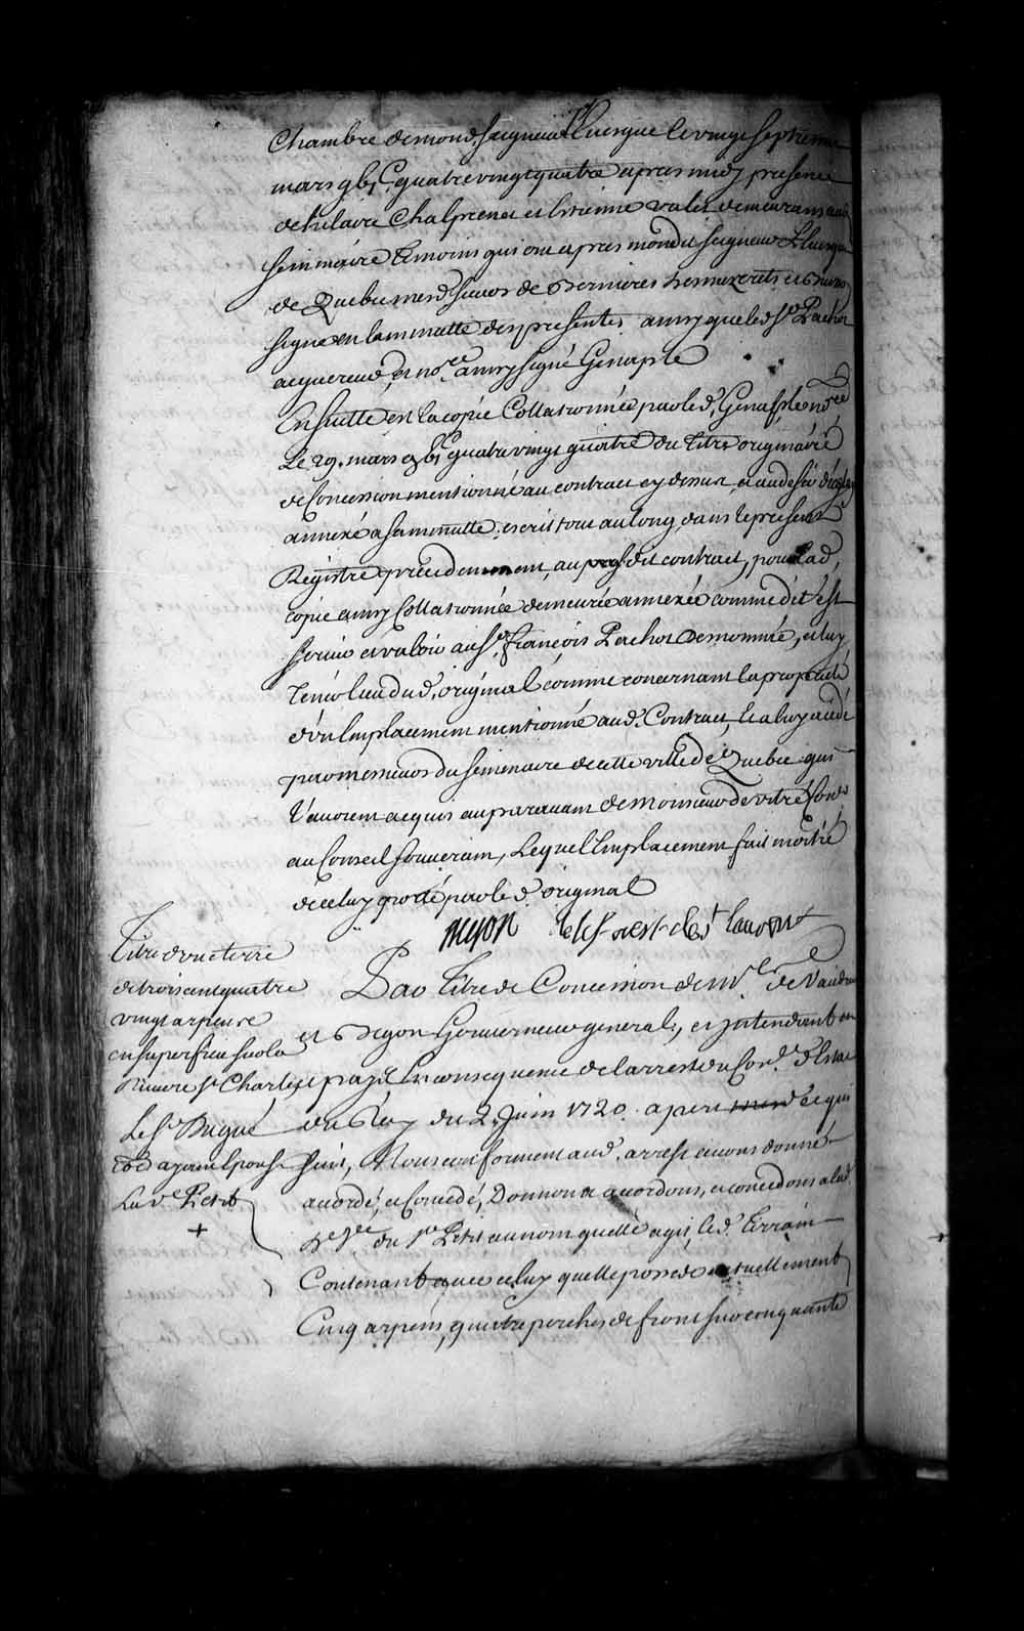 Chambre de mond. seigneur L'Evesque le vingt septieme
mars gbi C quatre vingt quatre apres midy presence
de hilaire et Estienne valet demeurans aud
seminaire temoins qui ont apres mondit seigneur L'Evesque
de Quebec mesd. sieurs de Bernieres Desmezerets et
signé en la minutte des presentes, ainsy que led. Sr. Pachot
acquereur et nore. ainsy signé Genaple
En suitte est la copie Collationnée par led. Genaple nore
Le 29. mars gbi C quatre vingt quatre du titre originaire
de Concession mentionné au contract cy dessus et
annexé a sa minutte, escrit tout au long dans le present
Registre precedemment, au dit contract, pour lad.
copie ainsy Collationnée demeurée annexée comme dit est
servir et valoir au Sr. françois Pachot denommé, et luy
tenir lieu dud. original comme concernant la proprieté
d'un Emplacement mentionné aud. Contract, a luy
par messieurs du seminaire de cette ville de Quebec qui
l'avoient acquis auparavant de Monsieur de vitré Conser
au Conseil Souverain, Lequel Emplacement fait moitié
de celuy porté par led. original
Titre d'une terre
de trois cent quatre
vingt arpens
en superficie sur la
riviere St Charles
Le Sr. Dugué
a epousé
La ve. Petit
+
Par titre de Concession de Mrs. de Vaudreuil
et Begon Gouverneur general, et Intendant en
ce pays En consequence de l'arrest du Conl. d'Estat
du Roy du 2. Juin 1720. apert ce qui
suit, Nous conformement aud. arrest avons donné
accordé, et Concedé, Donnons accordons, et concedons a lad.
ve. du Sr. Petit au nom quelle agit, le d. Terrain
Contenant avec celuy quelle possede actuellement
Cinq arpens, quatre perches de front sur cinquante